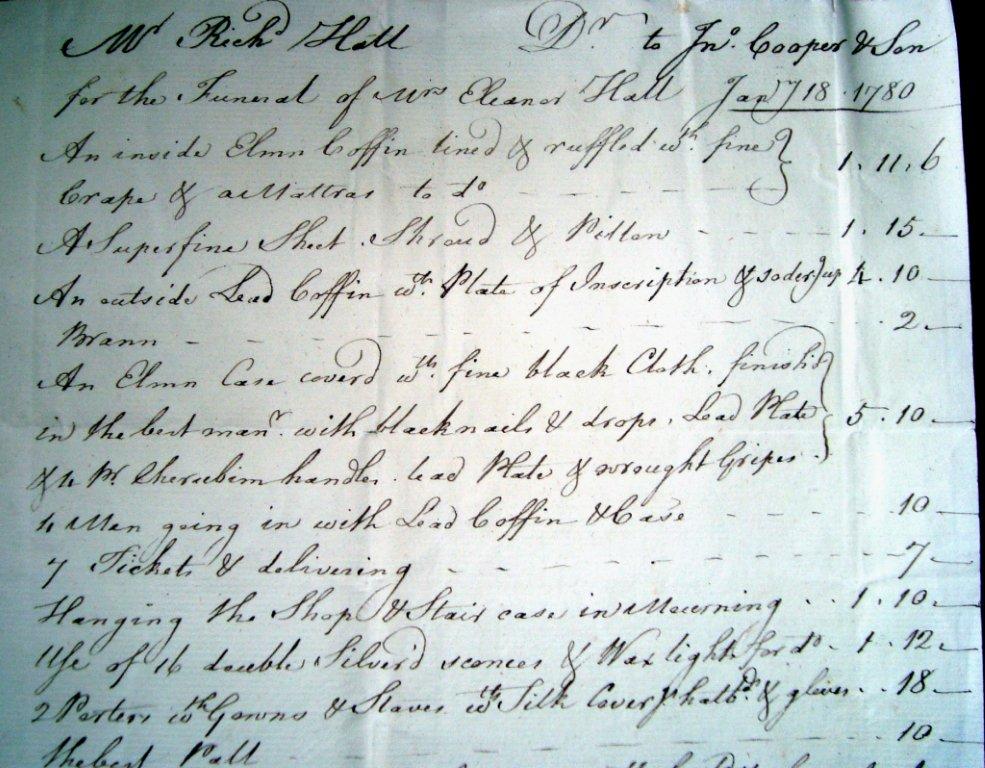 Mr Richd Hall Dr to Jno. Cooper & Son
for the Funeral of Mrs Eleanor Hall Jany 18 1780
An inside Elmn Coffin lined & ruffled wth fine
Crape & a Mattras to do - - - - 1 . 11 . 6
A Superfine Sheet Shroud & Pillow - - - - 1 . 15 . —
An outside Lead Coffin wth. Plate of Inscription & soder] up 4 . 10 —
Brann - - - - - - - - . 2 . —
An Elmn Case coverd wth. fine black Cloth, finish'd
in the best manr. with black nails & drops, Lead Plate 5 . 10 . —
& 4 Pr. Cherubim handles. lead Plate & wrought Gripes .
4 Men going in with Lead Coffin & Case - - - - . 10 —
7 Tickets & delivering - - - - - - 7 —
Hanging the Shop & Stair case in Mourning . . 1 . 10 . —
Use of 16 double Silver'd sconces & Wax lights for do . 1 . 12 . —
2 Porters wth Gowns & Staves wth Silk Covers hatbds. & gloves . . 18 —
the best Pall - - - - - . 10 —